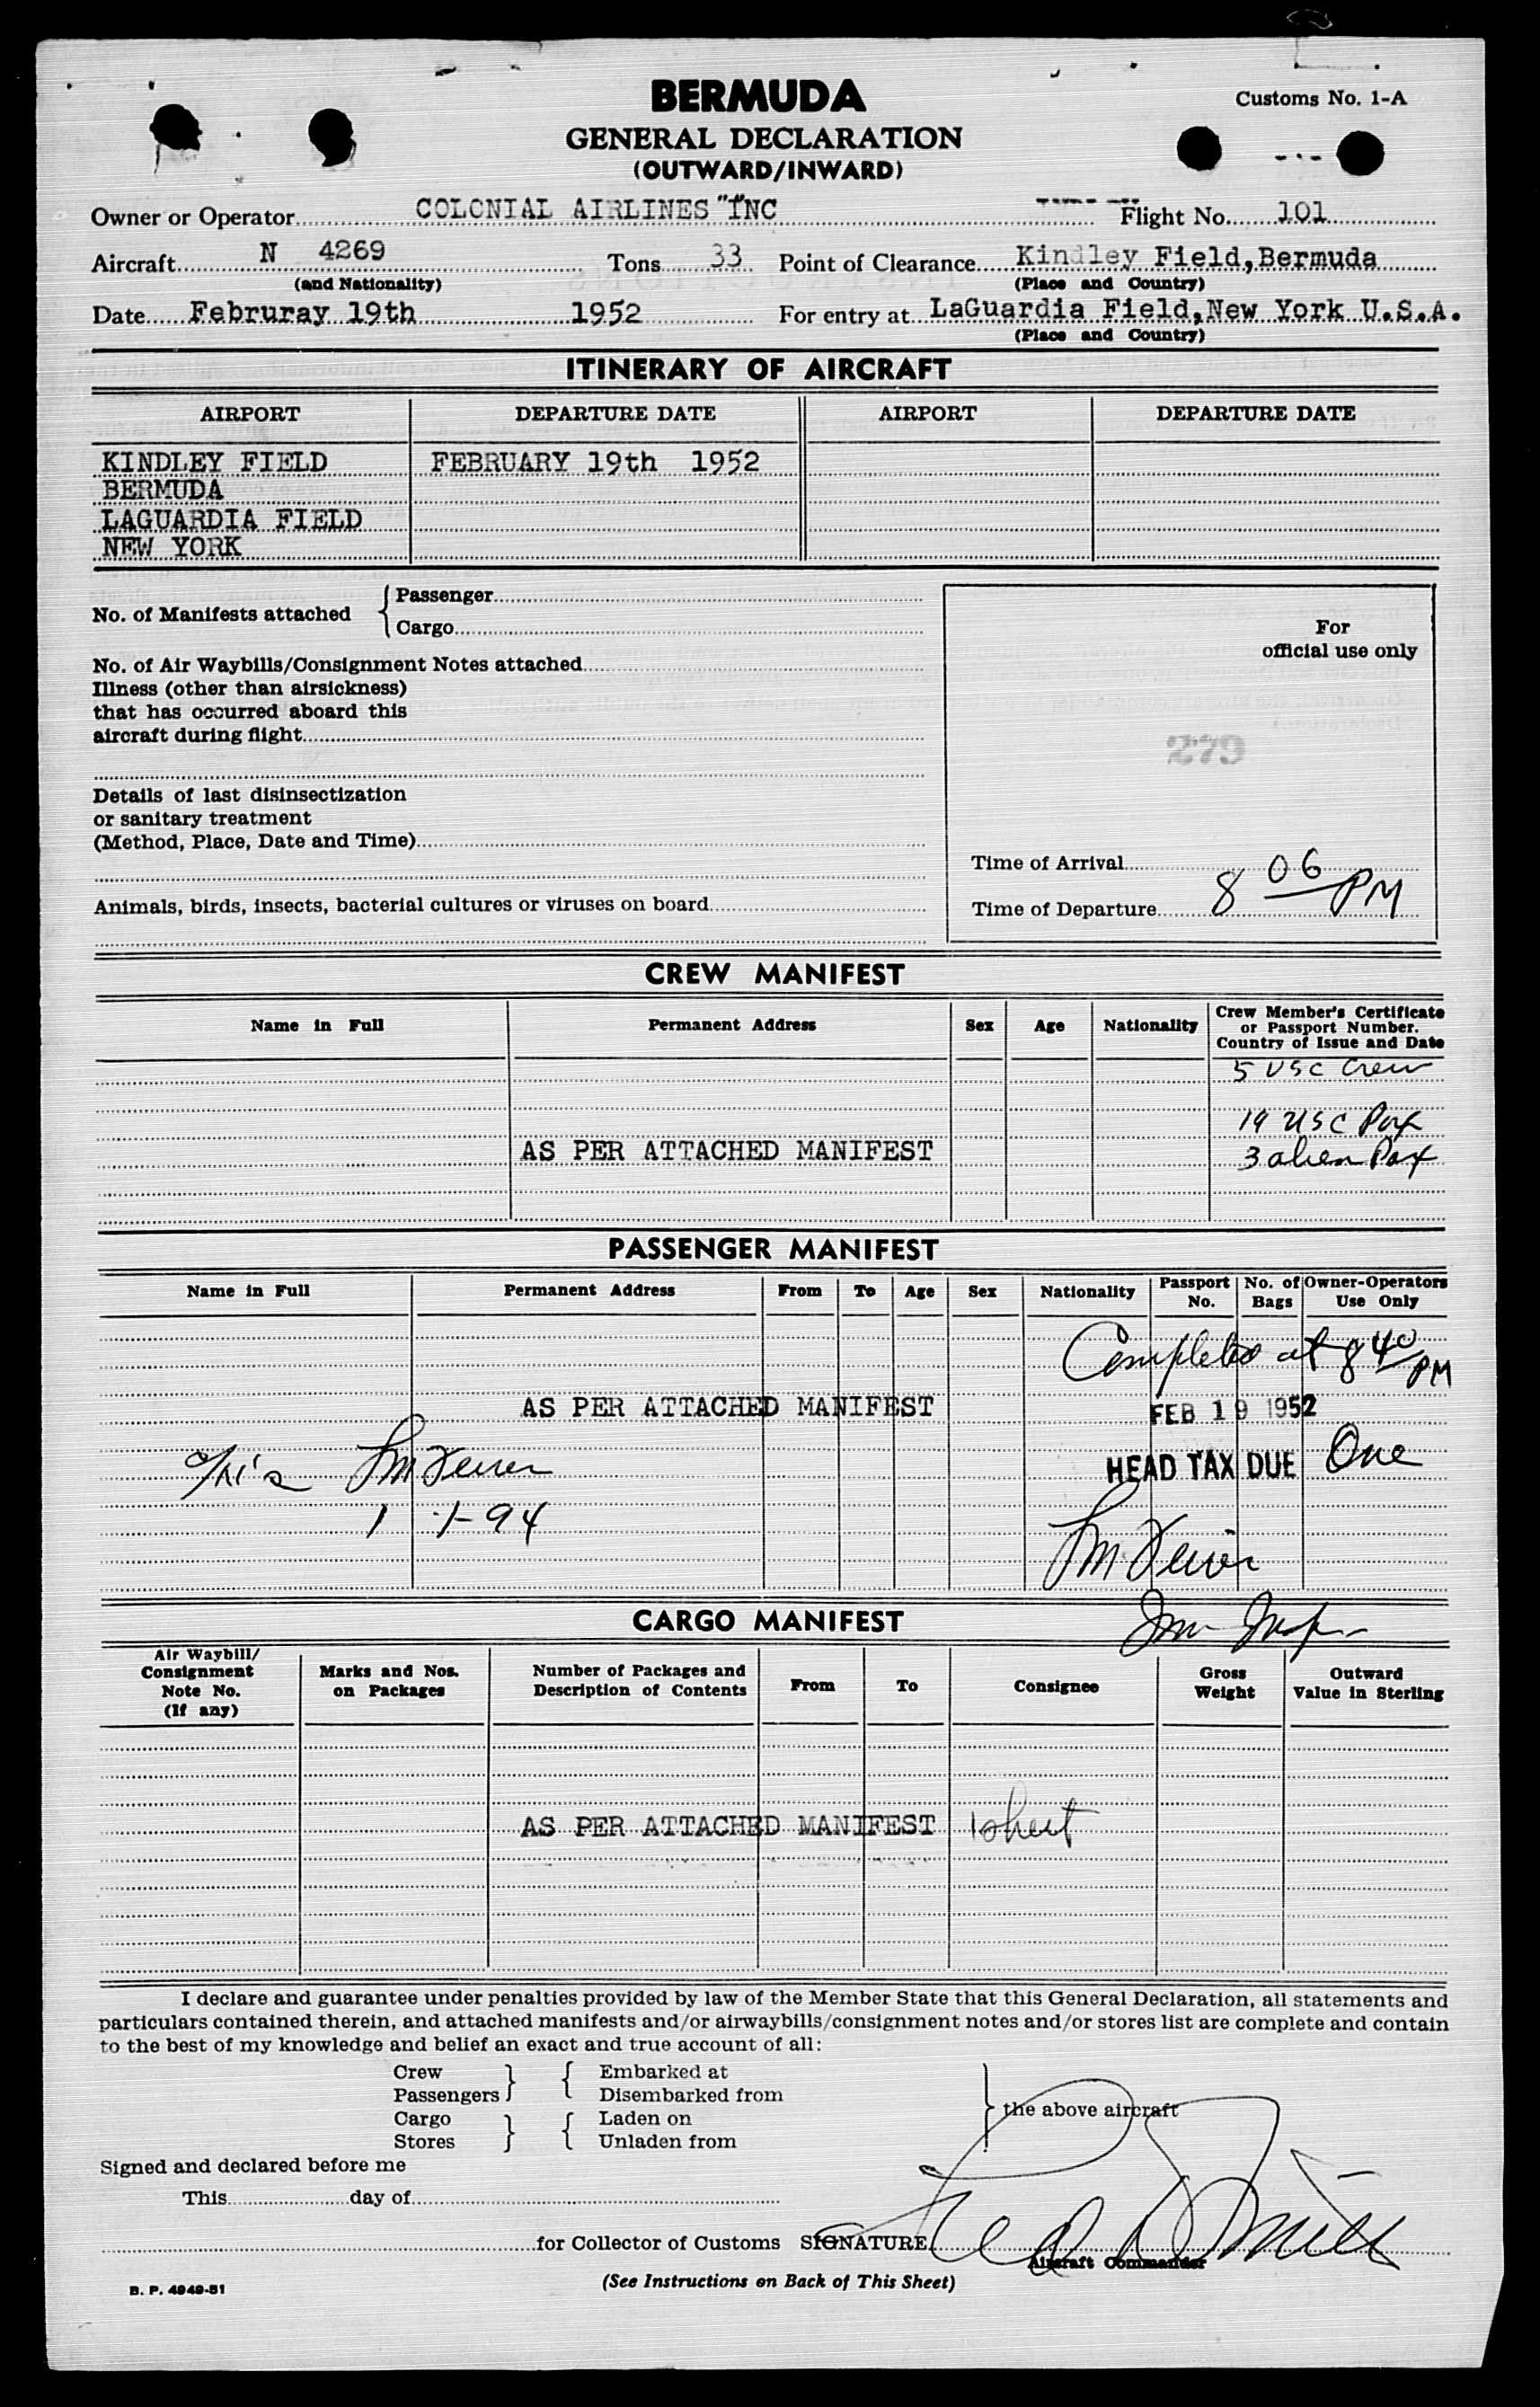 BERMUDA
Customs No. 1-A
GENERAL DECLARATION
(OUTWARD/INWARD)
Owner or Operator COLONIAL AIRLINES "INC Flight No. 101
Aircraft N 4269 Tons 33 Point of Clearance Kindley Field,Bermuda
(and Nationality) (Place and Country)
Date Februray 19th 1952 For entry at LaGuardia Field,New York U.S.A.
(Place and Country)
ITINERARY OF AIRCRAFT
AIRPORT DEPARTURE DATE AIRPORT DEPARTURE DATE
KINDLEY FIELD FEBRUARY 19th 1952
BERMUDA
LAGUARDIA FIELD
NEW YORK
No. of Manifests attached Passenger
Cargo
For
official use only
No. of Air Waybills/Consignment Notes attached
Illness (other than airsickness)
that has occurred aboard this
aircraft during flight
279
Details of last disinsectization
or sanitary treatment
(Method, Place, Date and Time)
Time of Arrival
Animals, birds, insects, bacterial cultures or viruses on board
Time of Departure 8 06 PM
CREW MANIFEST
Name in Full Permanent Address Sex Age Nationality Crew Member's Certificate
or Passport Number.
Country of Issue and Date
5 USC Crew
19 USC Pax
AS PER ATTACHED MANIFEST 3 alien Pax
PASSENGER MANIFEST
Name in Full Permanent Address From To Age Sex Nationality Passport No. No. of Bags Owner-Operators Use Only
Completed at 8 40 PM
AS PER ATTACHED MANIFEST FEB 19 1952
HEAD TAX DUE One
1-94
CARGO MANIFEST
Air Waybill/
Consignment
Note No.
(If any)
Marks and Nos.
on Packages
Number of Packages and
Description of Contents
From To Consignee
Gross
Weight
Outward
Value in Sterling
AS PER ATTACHED MANIFEST
I declare and guarantee under penalties provided by law of the Member State that this General Declaration, all statements and
particulars contained therein, and attached manifests and/or airwaybills/consignment notes and/or stores list are complete and contain
to the best of my knowledge and belief an exact and true account of all:
Crew Embarked at
Passengers Disembarked from
the above aircraft
Cargo Laden on
Stores Unladen from
Signed and declared before me
This day of
for Collector of Customs SIGNATURE
Aircraft Commander
B. P. 4949-51
(See Instructions on Back of This Sheet)